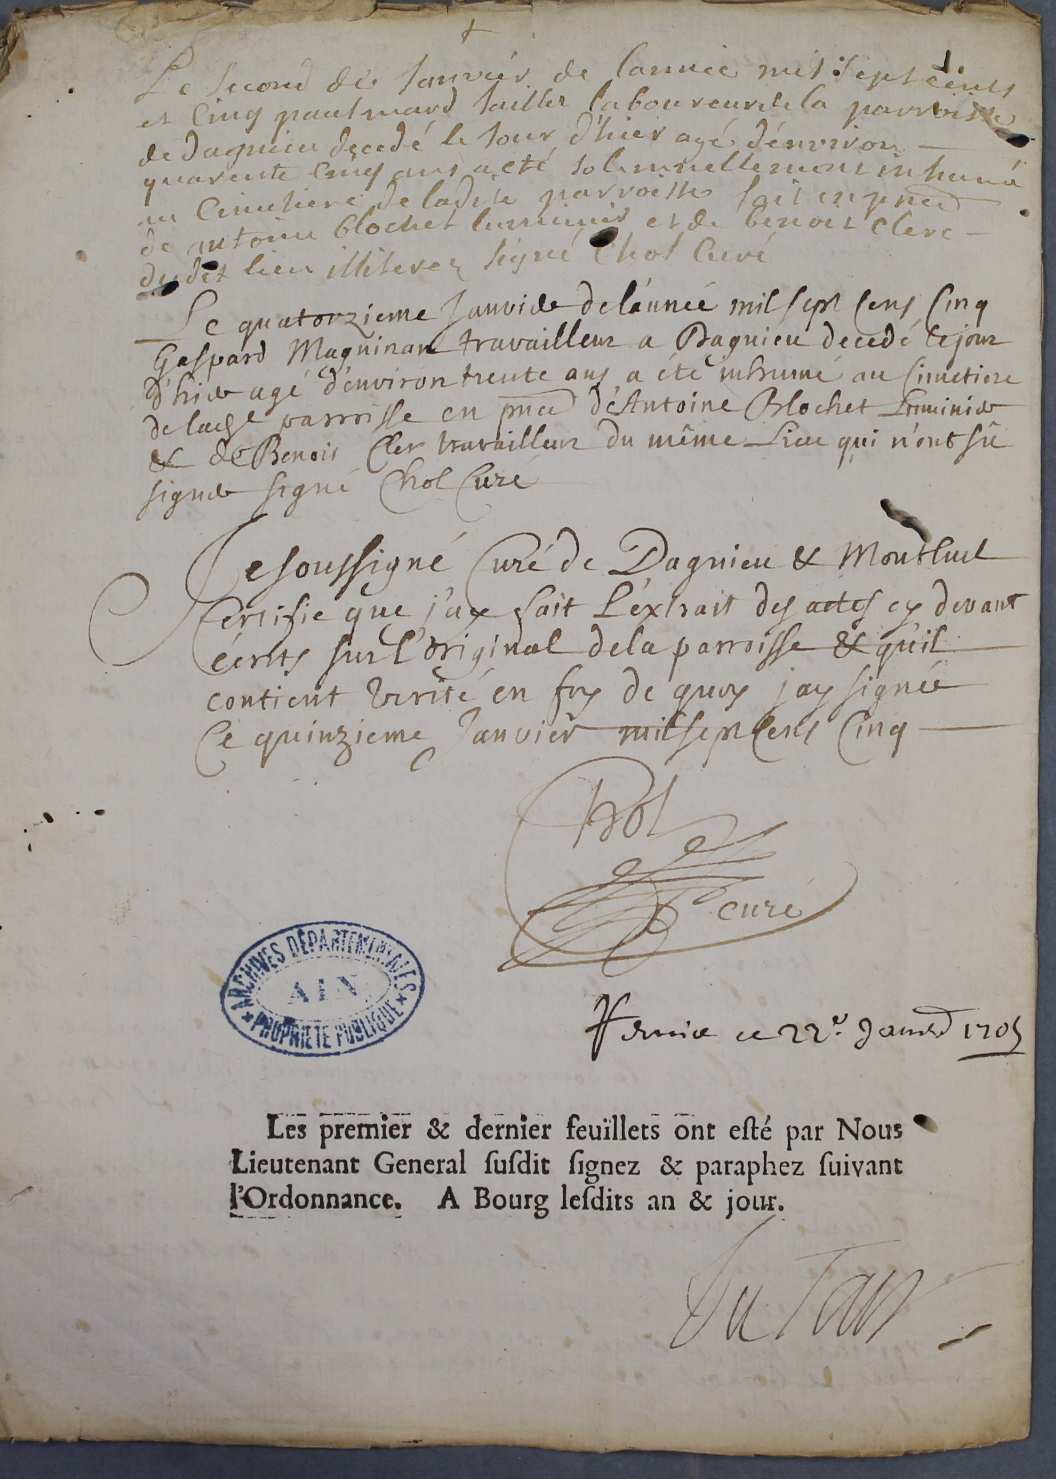 Le second de Janvier de lannée mil sept cents
et Cinq paul mard tailler laboureur de la parroisse
de dagnieu decedé le Jour d'hier agé d'environ
quarente Cinq ans a eté solemnellement inhumé
au Cimetiere de ladite parroisse fait en pnce
de antoine blochet luminier et de benoit Clerc
dudit lieu illiterez signé Chol Curé
Le quatorzieme Janvier de l'année mil sept cens Cinq
Gaspard Maguinan travailleur a Dagnieu decedé le jour
d'hier agé d'environ trente ans a été inhumé au Cimetiere
de lad parroisse en pnce d'Antoine Blochet Luminier
& de Benoit Cler travailleur du même Lieu qui n'ont sû
signer signé Chol Curé
Je soussigné Curé de Dagnieu & Montluel
Certifie que j'ay fait L'éxtrait des actes cy devant
écrits sur l'original de la parroisse & qu'il
contient verité en foy de quoy jay signée
Ce quinzieme Janvier mil sept cens Cinq
Chol
curé
ARCHIVES DÉPARTEMENTALES
AIN
PROPRIÉTÉ PUBLIQUE
ce 22e Janvier 1705
Les premier & dernier feuillets ont eſté par Nous
Lieutenant General ſuſdit ſignez & paraphez ſuivant
l'Ordonnance. A Bourg leſdits an & jour.